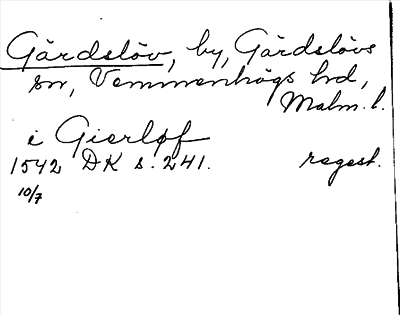 Gärdslöv, by, Gärdslövs
sn, Vemmenhögs hd,
Malm. l.
i Gierløf
1542 DK s. 241. regest.
10/7